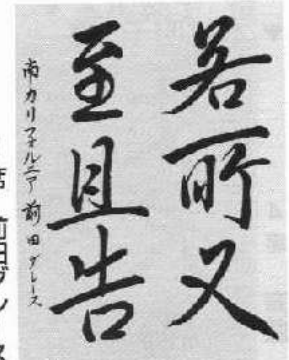 若所又
至且告
南カリフォルニア 前田グレース